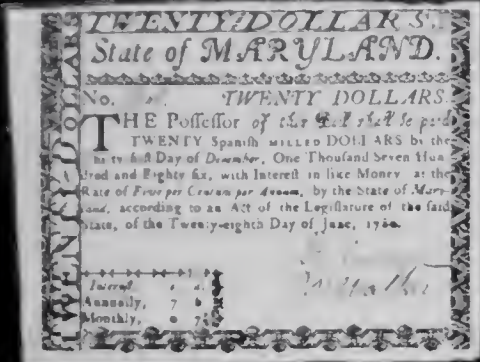 TWENTY DOLLARS.
State of MARYLAND.
No. TWENTY DOLLARS.
THE Poſſeſſor of this Bill ſhall be paid
TWENTY Spanish MILLED DOLLARS by the
thirty firſt Day of December, One Thouſand Seven Hun-
dred and Eighty ſix, with Intereſt in like Money at the
Rate of Five per Centum per Annum, by the State of Mary-
land, according to an Act of the Legiſlature of the ſaid
State, of the Twenty-eighth Day of June, 1780.
Intereſt. s. d.
Annually, 7 6
Monthly, 0 7½
TWENTY-DOLLARS